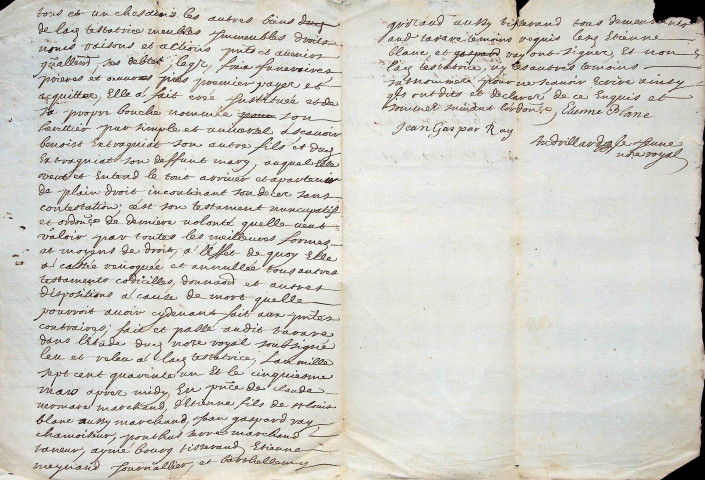 tous et un chescuns les autres biens dud
de lad testatrice meubles immeubles droits
noms raisons et actions pntes et avenir
quallent ses debtes legs, frais funeraires
prieres et œuvres pies premier payer et
acquitter, Elle a fait créé Instituée et de
sa propre bouche nommée son
heritier pur simple et universel Scavoir
benoist Extragniat son autre fils et dud
Extragniat son deffunt mary, auquel Elle
veut et Entend le tout arriver et apartenir
de plain droit incontinant son decez sans
contestation; c'est son testament nuncupatif
et ordonce de derniere volonté quelle veut
valoir par toutes les meilleures formes
et moyens de droit, a l'effet de quoy Elle
a cassée revoquée et annullée tous autres
testaments codicilles, donnaons et autres
dispositions a cause de mort quelle
pourroit avoir cydevant fait aux pntes
contraires; fait et passé audit tarare
dans l'etude dud nore royal soubsigné
leu et releu a lad testatrice, Lan mille
sept cent quarente un Et le cinquiesme
mars apres midy, En pnce de claude
marchand, d'Etienne fils de Louis
blanc aussy marchand, jean gaspard ray
chamoiseur, ponthus marchand
taneur, aymé bourg tisserand, Etienne
meynard journallier, et barthellemy
giraud aussy tisserand tous demeurants
aud tarare temoins requis lesd Etienne
blanc et gaspard ray ont signer, Et non
lad testatrice, ny les autres temoins
pour ne scavoir Ecrire ainsy
ils ont dits et declarer de ce Enquis et
sommer suivant l'ordonce, Etienne Blanc
Jean Gaspar Ray
le jeune
nore royal